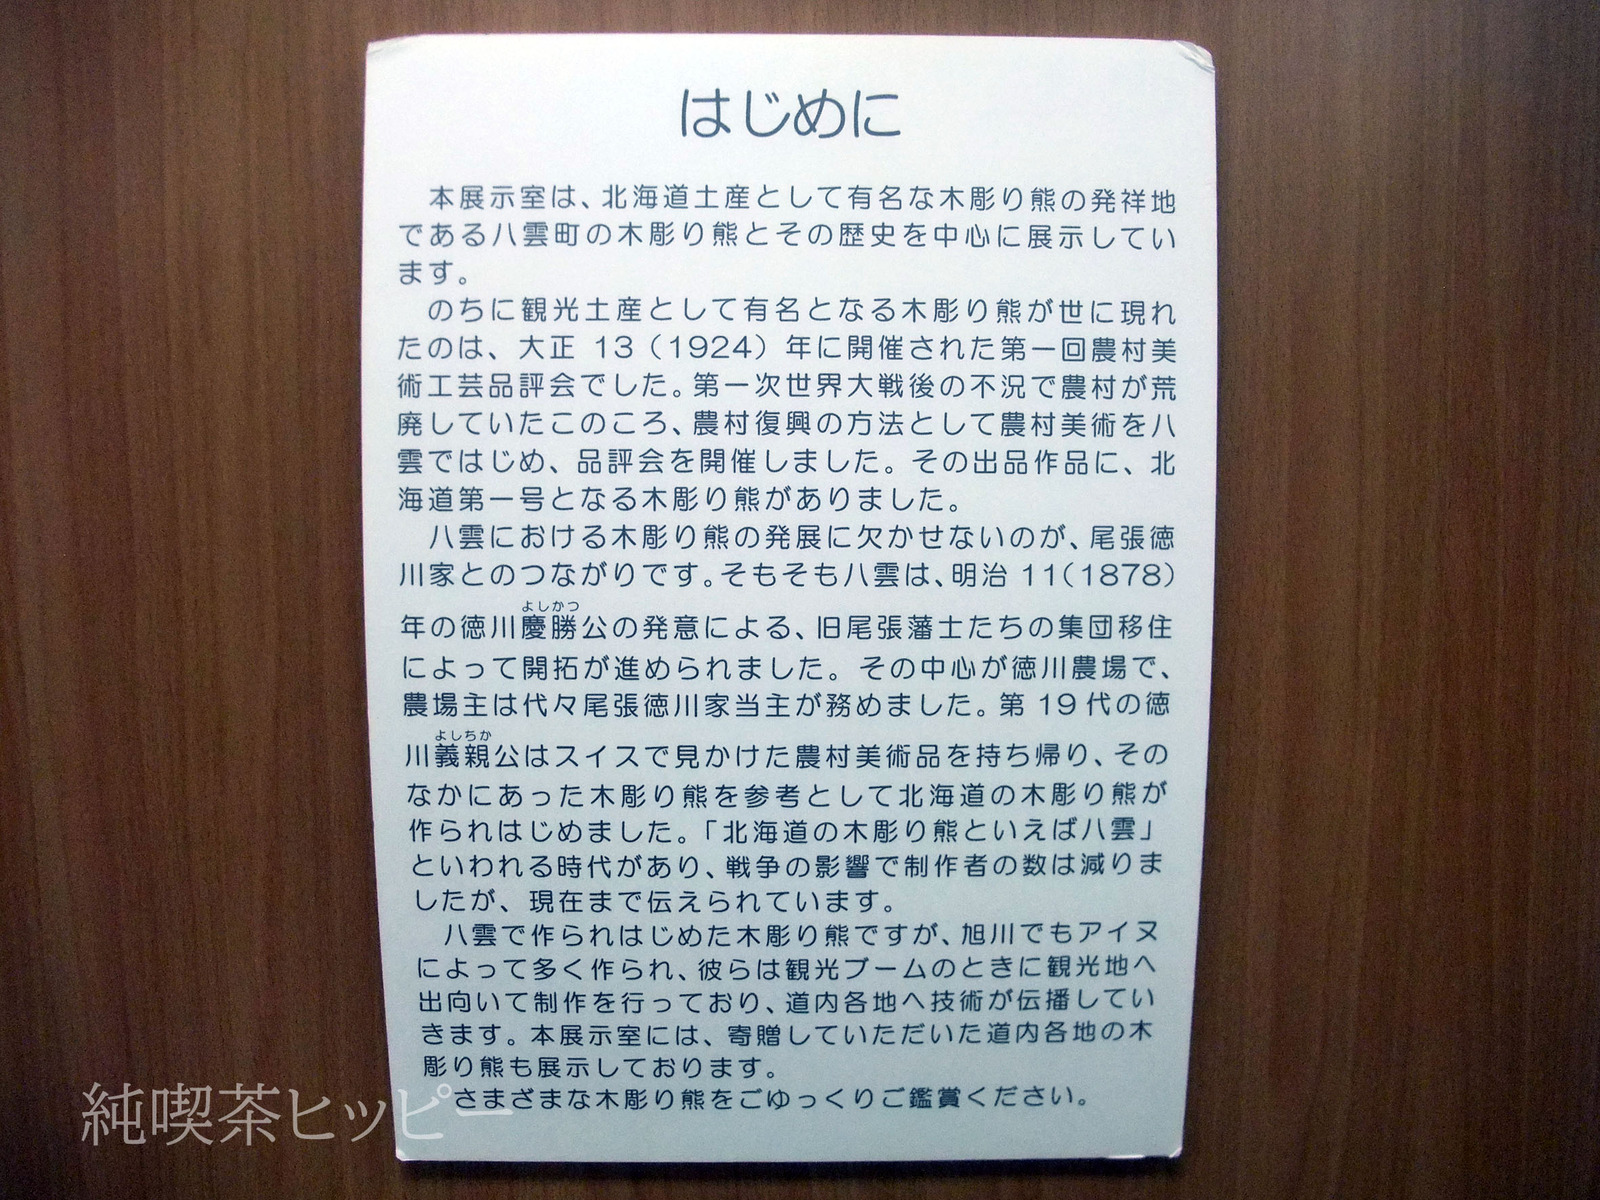 はじめに
本展示室は、北海道土産として有名な木彫り熊の発祥地
である八雲町の木彫り熊とその歴史を中心に展示してい
ます。
のちに観光土産として有名となる木彫り熊が世に現れ
たのは、大正 13（1924）年に開催された第一回農村美
術工芸品評会でした。第一次世界大戦後の不況で農村が荒
廃していたこのころ、農村復興の方法として農村美術を八
雲ではじめ、品評会を開催しました。その出品作品に、北
海道第一号となる木彫り熊がありました。
八雲における木彫り熊の発展に欠かせないのが、尾張徳
川家とのつながりです。そもそも八雲は、明治 11（1878）
よしかつ
年の徳川慶勝公の発意による、旧尾張藩士たちの集団移住
によって開拓が進められました。その中心が徳川農場で、
農場主は代々尾張徳川家当主が務めました。第 19 代の徳
よしちか
川義親公はスイスで見かけた農村美術品を持ち帰り、その
なかにあった木彫り熊を参考として北海道の木彫り熊が
作られはじめました。「北海道の木彫り熊といえば八雲」
といわれる時代があり、戦争の影響で制作者の数は減りま
したが、現在まで伝えられています。
八雲で作られはじめた木彫り熊ですが、旭川でもアイヌ
によって多く作られ、彼らは観光ブームのときに観光地へ
出向いて制作を行っており、道内各地へ技術が伝播してい
きます。本展示室には、寄贈していただいた道内各地の木
彫り熊も展示しております。
さまざまな木彫り熊をごゆっくりご鑑賞ください。
純喫茶ヒッピー